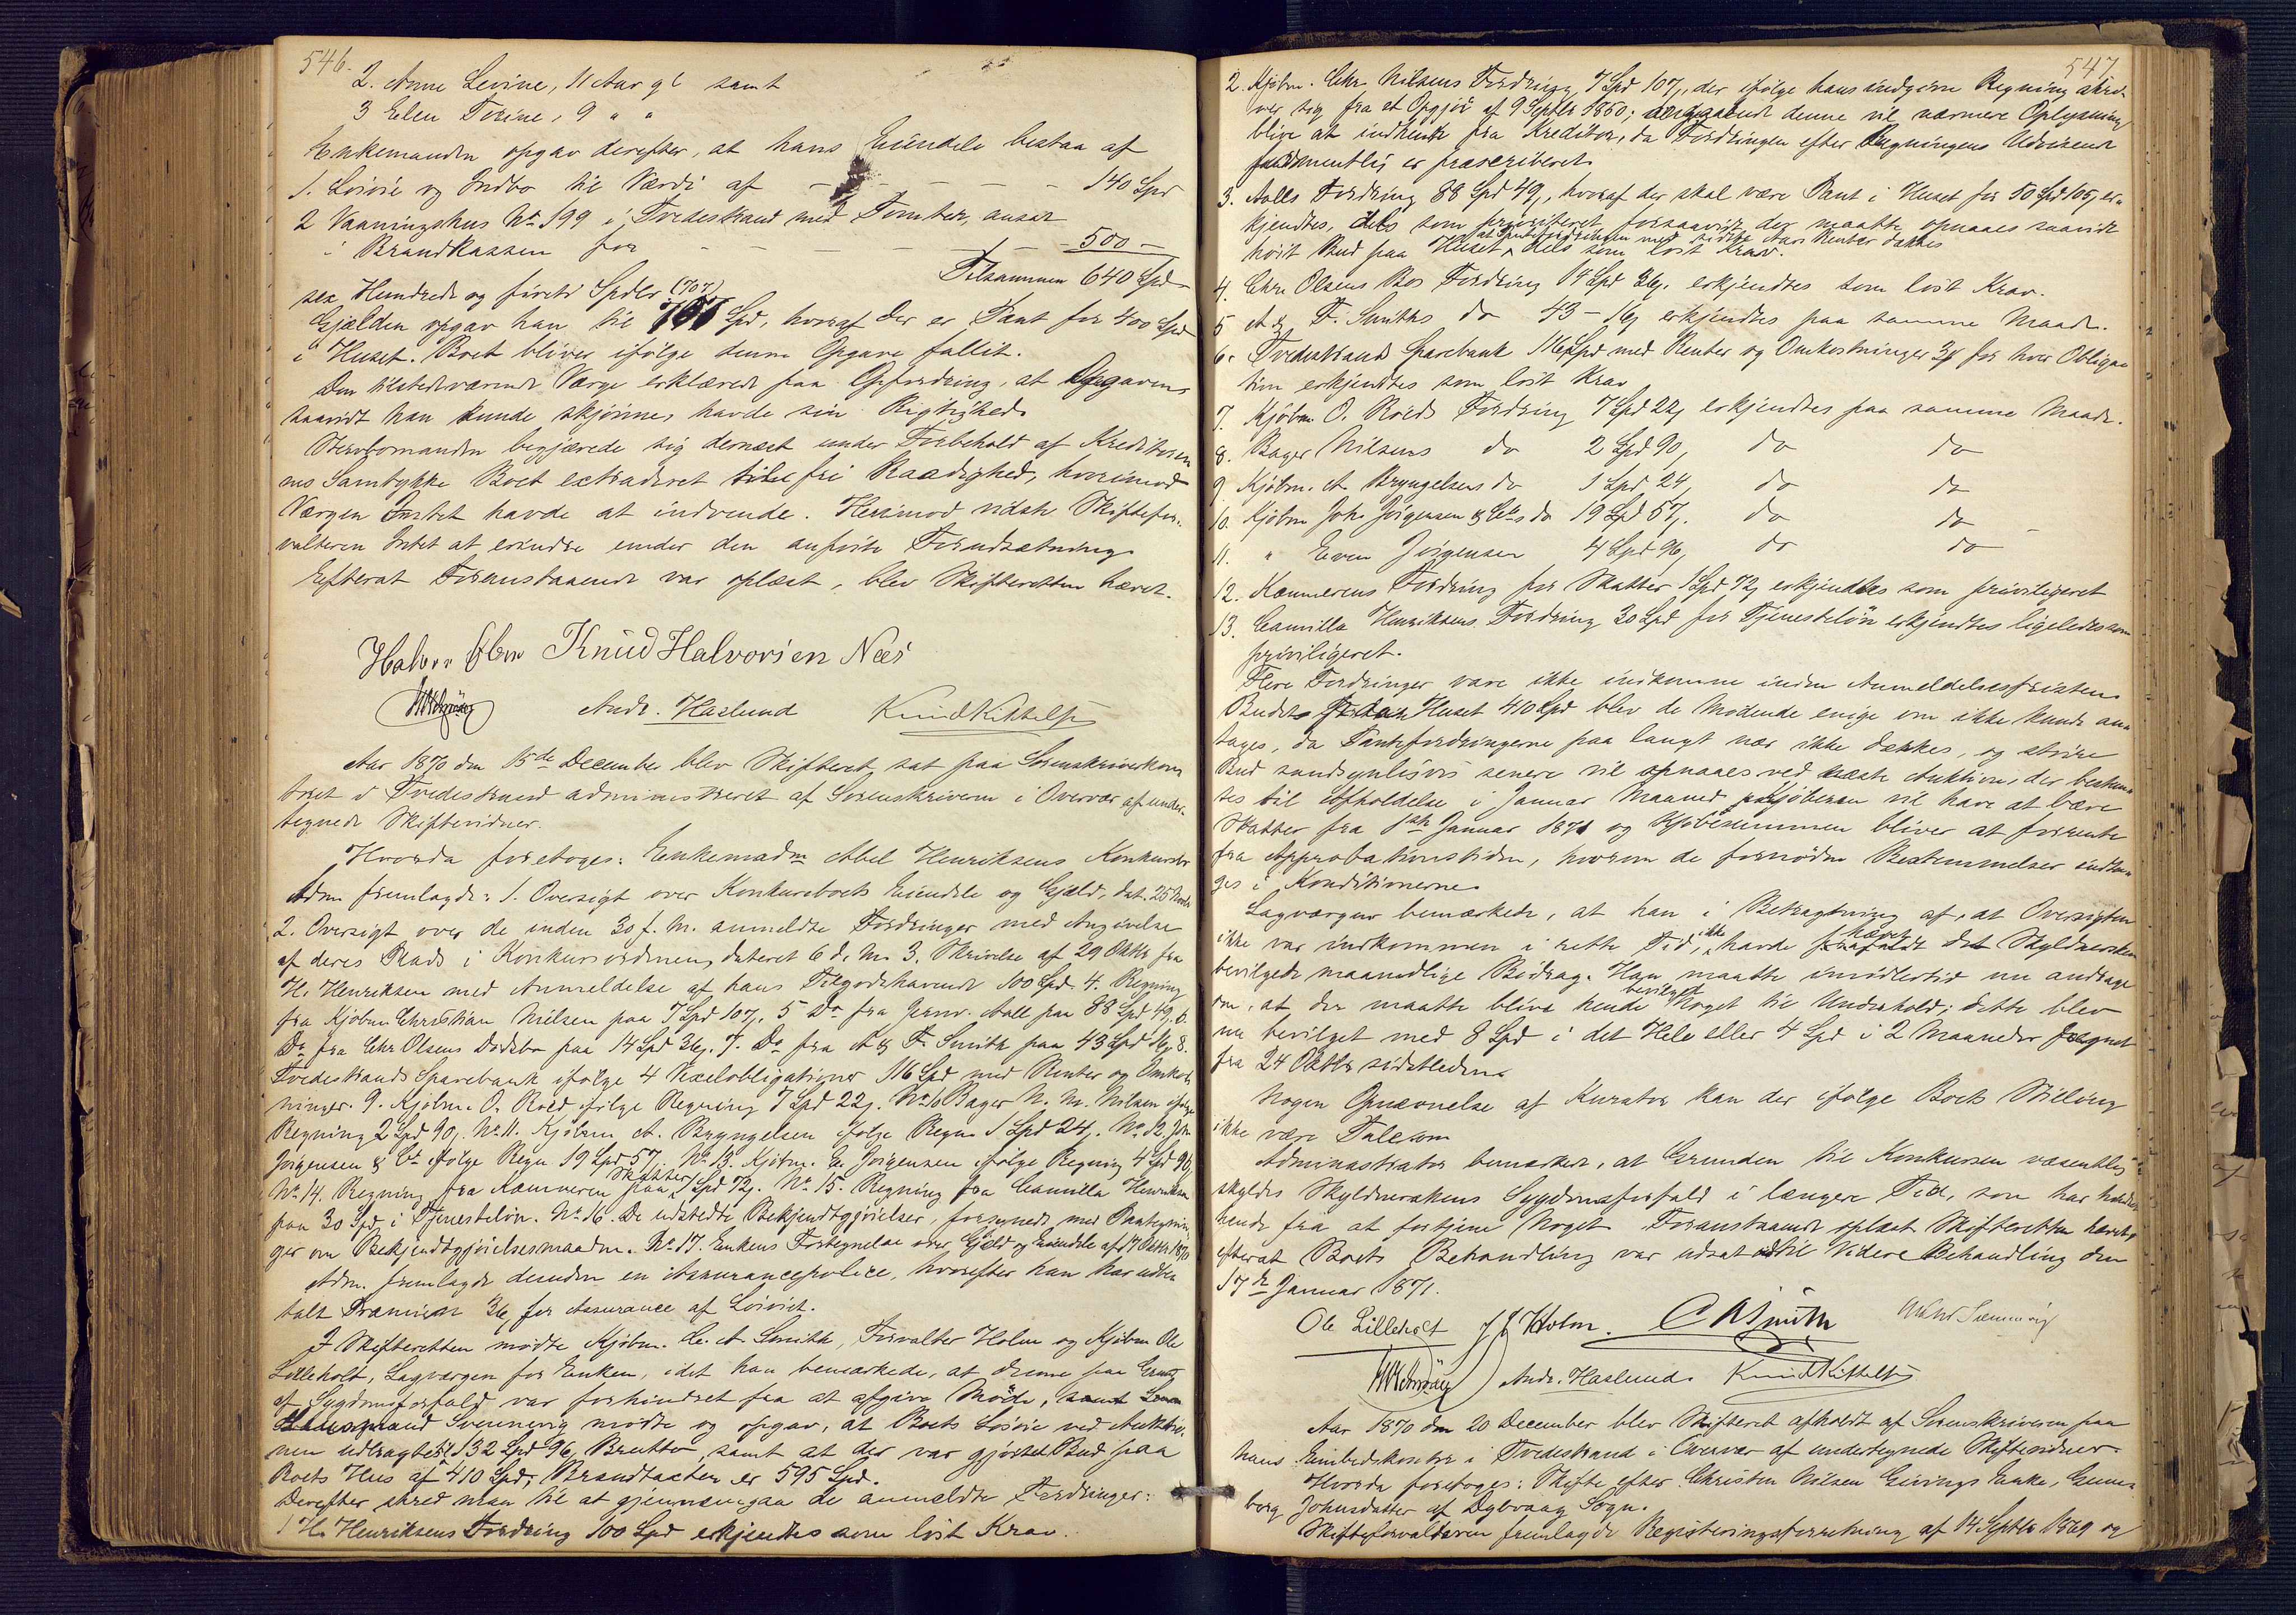 546.
2. Anne Levine, 11 Aar gl samt
3 Elen Torine, 9 " "
Enkemanden opgav derefter, at hans Eiendele bestaa af
1. Løsøre og Indbo til Værdi af - - - - 140 Spd
2 Vaaningshus No 199 i Tvedestrand med Tomter, ansat
i Brandkassen for - - - 500 -
Tilsammen 640 Spd
sex Hundrede og fireti Spdlr (707)
Gjælden opgav han til 707 Spd, hvoraf der er Pant for 400 Spd
i Huset. Boet bliver ifølge denne Opgave fallit.
Den tilstedeværende Værge erklærede paa Opfordring, at Opgaven,
saavidt han kunde skjønne, havde sin Rigtighed.
Stervbomanden begjærede sig dernæst under Forbehold af Kreditorer
nes Samtykke Boet extraderet til fri Raadighed, hvorimod
Værgen Intet havde at indvende. Herimod vidste Skiftefor-
valteren Intet at erindre under den anførte Forudsætning.
Efterat Foranstaaende var oplæst, blev Skifteretten hævet.
Halvor Olsen Knud Halvorsen Næs
Andr. Haslund Knud Kittelsen
Aar 1870 den 15de December blev Skifteret sat paa Sorenskriverkon
toret i Tvedestrand administreret af Sorenskriveren i Overvær af under-
tegnede Skiftevidner.
Hvorda foretoges: Enkemadm Abel Henriksens Konkursbo
Adm fremlagde: 1. Oversigt over Konkursboets Eiendele og Gjæld, dat. 25 Novbr
2. Oversigt over de inden 30 f. M. anmeldte Fordringer med Angivelse
af deres Plads i Konkursordenen, dateret 6 d. M. 3. Skrivelse af 29 Oktbr fra
H. Henriksen med Anmeldelse af hans Tilgodehavende 100 Spd. 4. Regning
fra Kjøbm Christian Nielsen paa 7 Spd 107. 5 Do fra Jernv. Aall paa 88 Spd 49. 6.
Do fra Chr Olsens Dødsbo paa 14 Spd 36. 7. Do fra A & F. Smith paa 43 Spd 16. 8.
Tvedestrands Sparebank ifølge 4 Vexelobligationer 116 Spd med Renter og Omkost
ninger. 9. Kjøbm. O. Roed ifølge Regning 7 Spd 22. No 10 Bager N. M. Nilsen ifølge
Regning 2 Spd 90. No 11. Kjøbm A. Bryngelsen ifølge Regn 1 Spd 24. No 12. Joh
Jörgensen & Co ifølge Regn 19 Spd 57. No 13. Kjøbm. E. Jørgensen ifølge Regning 4 Spd 96,
No 14. Regning fra Kæmneren paa Skatter 1 Spd 72. No 15. Regning fra Camilla Henriksen
paa 30 Spd i Tjenesteløn. No 16. De udstedte Bekjendtgjørelser, forsynede med Paategnin
ger om Bekjendtgjørelsesmaaden. No 17. Enkens Fortegnelse over Gjeld og Eiendele af 17 Oktbr 1870.
Adm. fremlagde desuden en Assurancepolice, hvorefter han har udbe
talt Præmien 36 for Assurance af Løsøret.
I Skifteretten mødte Kjøbm. C. A. Smith, Forvalter Holm og Kjøbm Ole
Lilleholt, Lagværgen for Enken, idet han bemærkede, at denne paa Grund
af Sygdomsforfald var forhindret fra at afgive Møde, samt Lens
mand Svenningsen mødte og opgav, at Boets Løsøre ved Auktio-
nen udbragtes til 132 Spd 96 Brutto, samt at der var gjort et Bud paa
Boets Hus af 410 Spd; Brandtaxten er 595 Spd.
Derefter skred man til at gjennemgaa de anmeldte Fordringer:
1 H. Henriksens Fordring 100 Spd erkjendtes som løst Krav.
547
2. Kjøbm. Chr. Nilsens Fordring 7 Spd 107, der ifølge hans indgivne Regning skri-
ver sig fra et Opgjør af 9 Septbr 1860; angaaende denne vil nærmere Oplysning
blive at indhente fra Kreditor, da Fordringen efter Regningens Udvisende
formentlig er præscriberet.
3. Aalls Fordring 88 Spd 49, hvoraf der skal være Pant i Huset for 50 Spd 105, er-
kjendtes, dels som prioriteret forsaavidt der maatte opnaaes saavidt
høit Bud paa Huset at Pantefordringen med sidste Aars Renter dækkes dels som løst Krav.
4. Chr. Olsens Bos Fordring 14 Spd 36. erkjendtes som løst Krav.
5 A & F. Smiths do 43 - 16 erkjendtes paa samme Maade.
6. Tvedestrands Sparebank 116 Spd med Renter og Omkostninger 34 for hver Obliga-
tion erkjendtes som løst Krav
7. Kjøbm. O. Roeds Fordring 7 Spd 22 erkjendtes paa samme Maade.
8. Bager Nilsens do 2 Spd 90, do do
9 Kjøbm. A Bryngelsens do 1 Spd 24, do do
10. Kjøbm Joh. Jörgensen & Co's do 19 Spd 57. do do
11. " Even Jörgensen 4 Spd 96, do do
12. Kæmnerens Fordring for Skatter 1 Spd 72 erkjendtes som priviligeret
13. Camilla Henriksens Fordring 30 Spd for Tjenesteløn erkjendtes ligeledes som
priviligeret.
Flere Fordringer vare ikke indkomne inden Anmeldelsesfristen.
Budet paa Huset 410 Spd blev de Mødende enige om ikke kunde an-
tages, da Pantefordringerne paa langt nær ikke dækkes, og større
Bud sandsynligvis senere vil opnaaes ved næste Auktion, der bestem-
tes til Afholdelse i Januar Maaned. Kjøberen vil have at bære
Skatter fra 1ste Januar 1871 og Kjøbesummen bliver at forrente
fra Approbationstiden, hvorom de fornødne Bestemmelser indta-
ges i Konditionerne.
Lagværgen bemærkede, at han i Betragtning af, at Oversigten
ikke var indkommen i rette Tid, ikke havde hævet det Skyldnersken
bevilgede maanedlige Bidrag. Han maatte imidlertid nu andrage
om, at der maatte blive hende bevilget Noget til Underhold; dette blev
nu bevilget med 8 Spd i det Hele eller 4 Spd i 2 Maaneder regnet
fra 24 Oktbr sidstleden.
Nogen Opnævnelse af Kurator kan der ifølge Boets Stilling
ikke være Tale om
Administrator bemærkede, at Grunden til Konkursen væsentlig
skyldes Skyldnerskens Sygdomsforfald i længere Tid, som har hindret
hende fra at fortjene Noget. Foranstaaende oplæst Skifteretten hævet,
efterat Boets Behandling var udsat til Videre Behandling den
17de Januar 1871.
Ole Lilleholt J J Holm. C A Smith
Andr. Haslund. Knud Kittelsen
Aar 1870 den 20 December blev Skifteret afholdt af Sorenskriveren paa
hans Embedskontor i Tvedestrand i Overvær af undertegnede Skiftevidner.
Hvorda foretoges: Skifte efter Christen Nilsen Givings Enke, Gun-
borg Johnsdatter af Dybvaag Sogn.
Skifteforvalteren fremlagde Registreringsforretning af 14 Septbr 1869 og